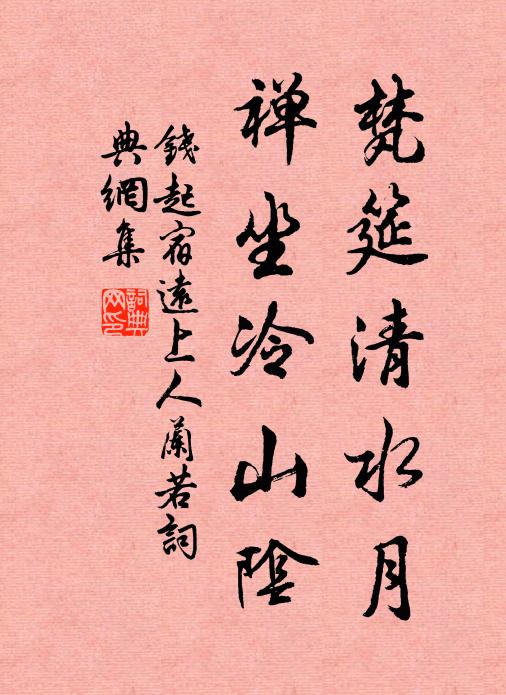 梵筵清水月
禅坐冷山陰
錢起宿遠上人蘭若詞
典網集
詞典
网印